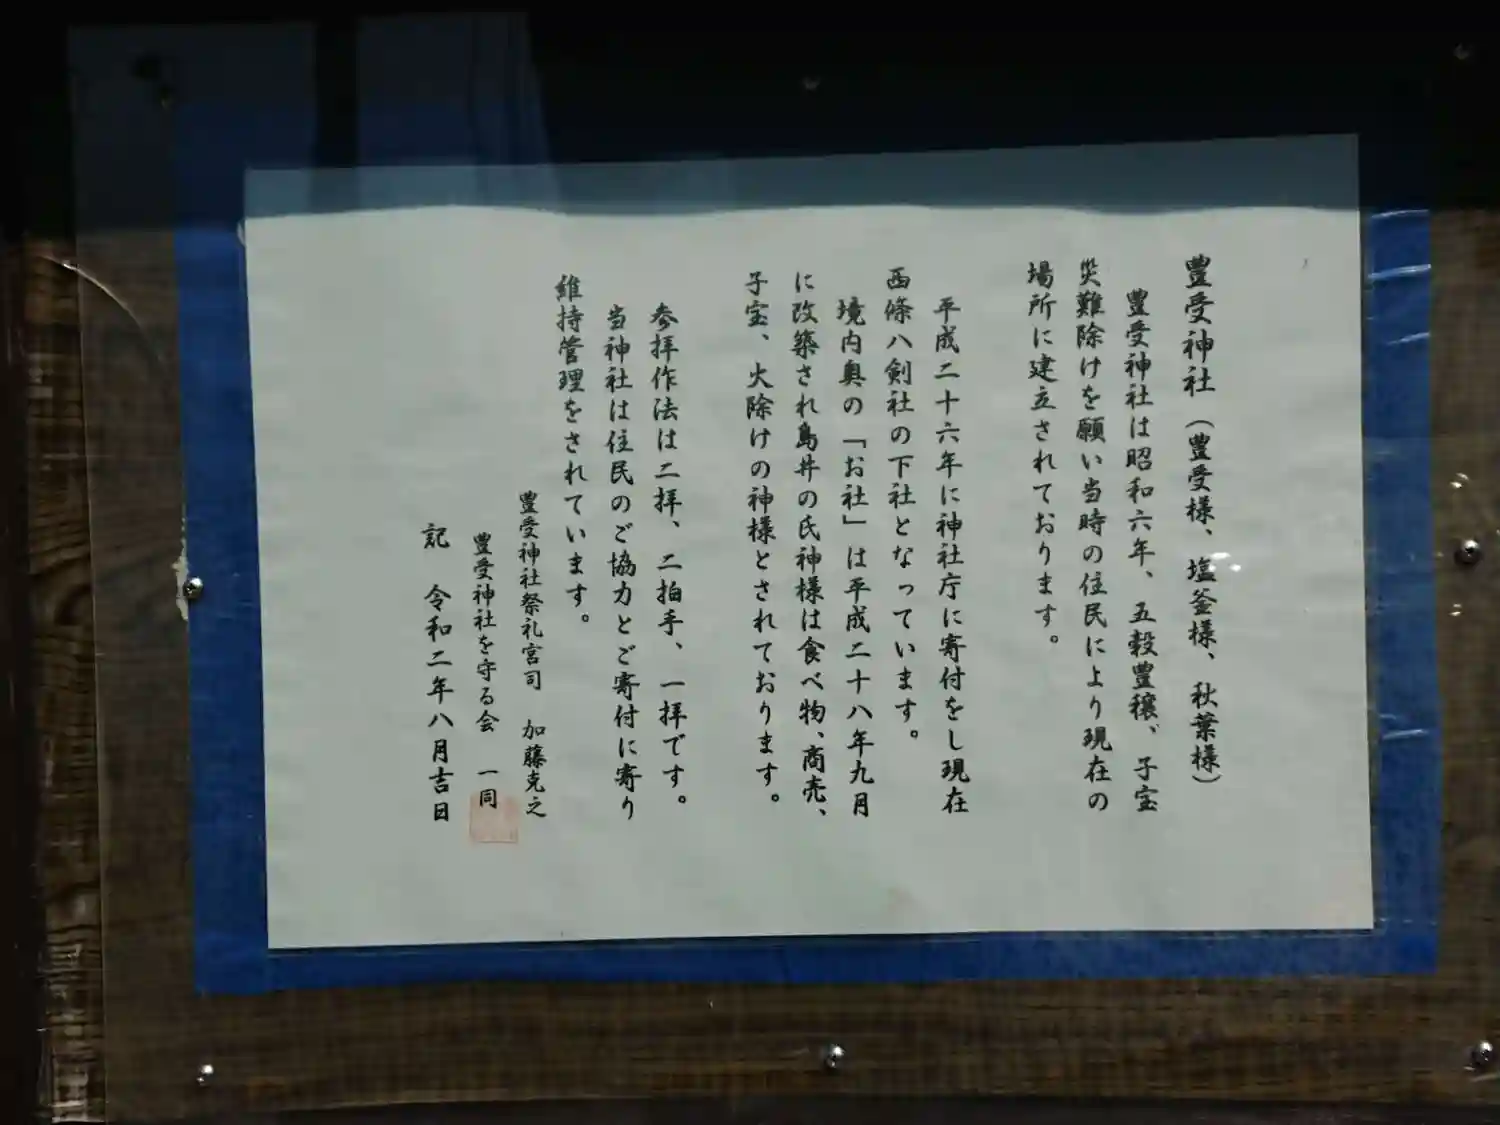 豊受神社（豊受様、塩釜様、秋葉様）
豊受神社は昭和六年、五穀豊穣、子宝
災難除けを願い当時の住民により現在の
場所に建立されております。
平成二十六年に神社庁に寄付をし現在
西條八剣社の下社となっています。
境内奥の「お社」は平成二十八年九月
に改築され鳥井の氏神様は食べ物、商売、
子宝、火除けの神様とされております。
参拝作法は二拝、二拍手、一拝です。
当神社は住民のご協力とご寄付に寄り
維持管理をされています。
豊受神社祭礼宮司 加藤克之
豊受神社を守る会 一同
記 令和二年八月吉日